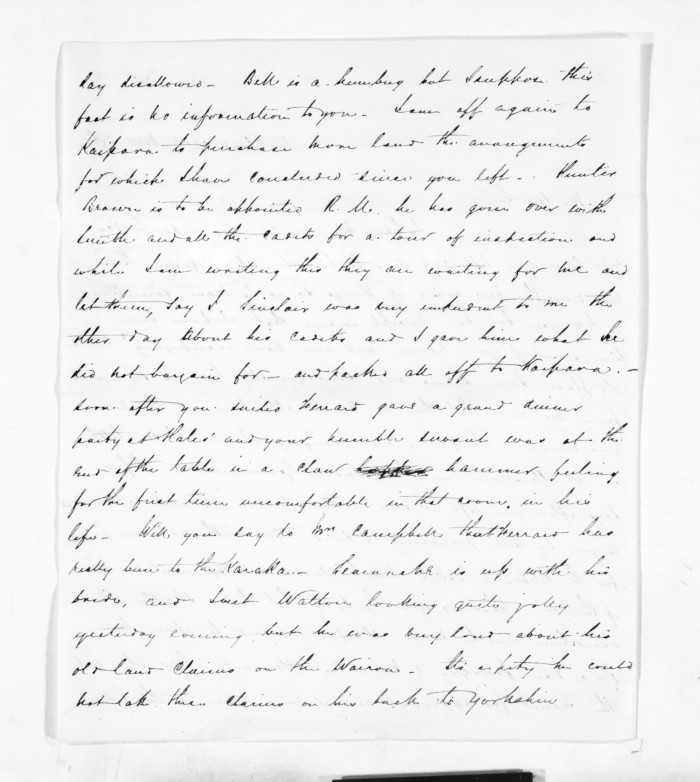 say disallowed - Bell is a humbug but I suppose this
fact is no information to you - I am off again to
Kaipara to purchase more land the arrangements
for which I have concluded since you left - Hunter
Brown is to be appointed R. M. he has gone over with
Smith and all the Cadets for a tour of inspection and
while I am writing this they are waiting for me and
let them, say I. Sinclair was very impudent to me the
other day about his cadets and I gave him what he
did not bargain for - and packed all off to Kaipara. -
soon after you sailed Ferrard gave a grand dinner
party at Hales' and your humble servant was at the
end of the table in a claw hammer feeling
for the first time uncomfortable in that room, in his
life - Will you say to Mrs Campbell that Ferrard has
really been to the Karaka - is up with his
bride, and I met Walton looking quite jolly
yesterday evening but he was very loud about his
old land claims on the Wairoa - Its a pity he could
not take these claims on his back to Yorkshire.